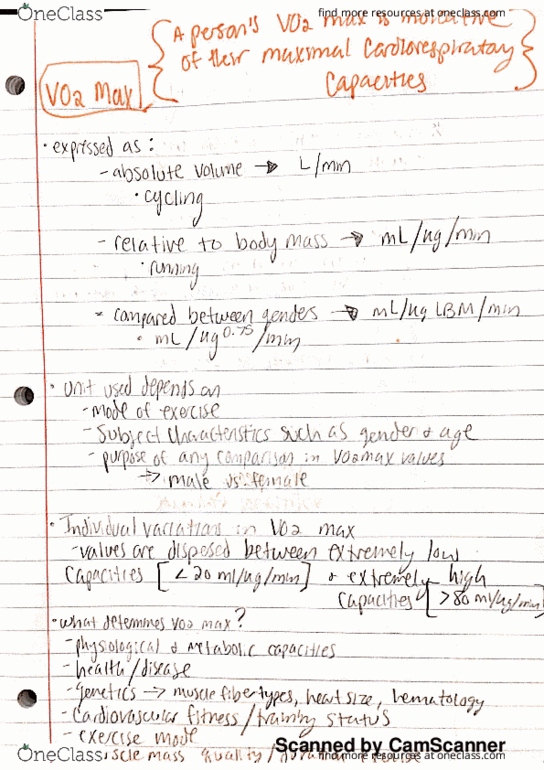 OneClass
find more resources at oneclass.com
A person's VO2 max is indicative
of their maximal cardiorespiratory
capacities
VO2 Max
• expressed as:
- absolute volume → L/min
• cycling
- relative to body mass → mL/kg/min
• running
- compared between genders → mL/kg LBM/min
• mL/kg^0.75/min
• Unit used depends on
- mode of exercise
- Subject characteristics such as gender & age
- purpose of any comparison in VO2max values
→ male vs. female
• Individual variations in VO2 max
- values are disposed between extremely low
capacities [< 20 ml/kg/min] & extremely high
capacities [>80 ml/kg/min]
• what determines VO2 max?
- physiological & metabolic capacities
- health/disease
- genetics → muscle fiber types, heart size, hematology
- cardiovascular fitness/training status
- exercise mode
Scanned by CamScanner
muscle mass quality/
OneClass
find more resources at oneclass.com